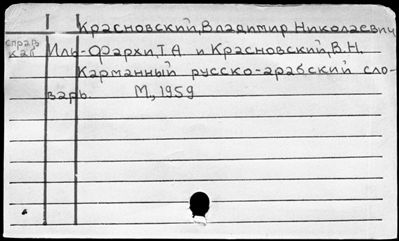 Красновский, Владимир Николаевич
справ Иль-Фархи, Т.А. и Красновский, В.Н.
кат Карманный русско-арабский сло-
варь. М., 1959